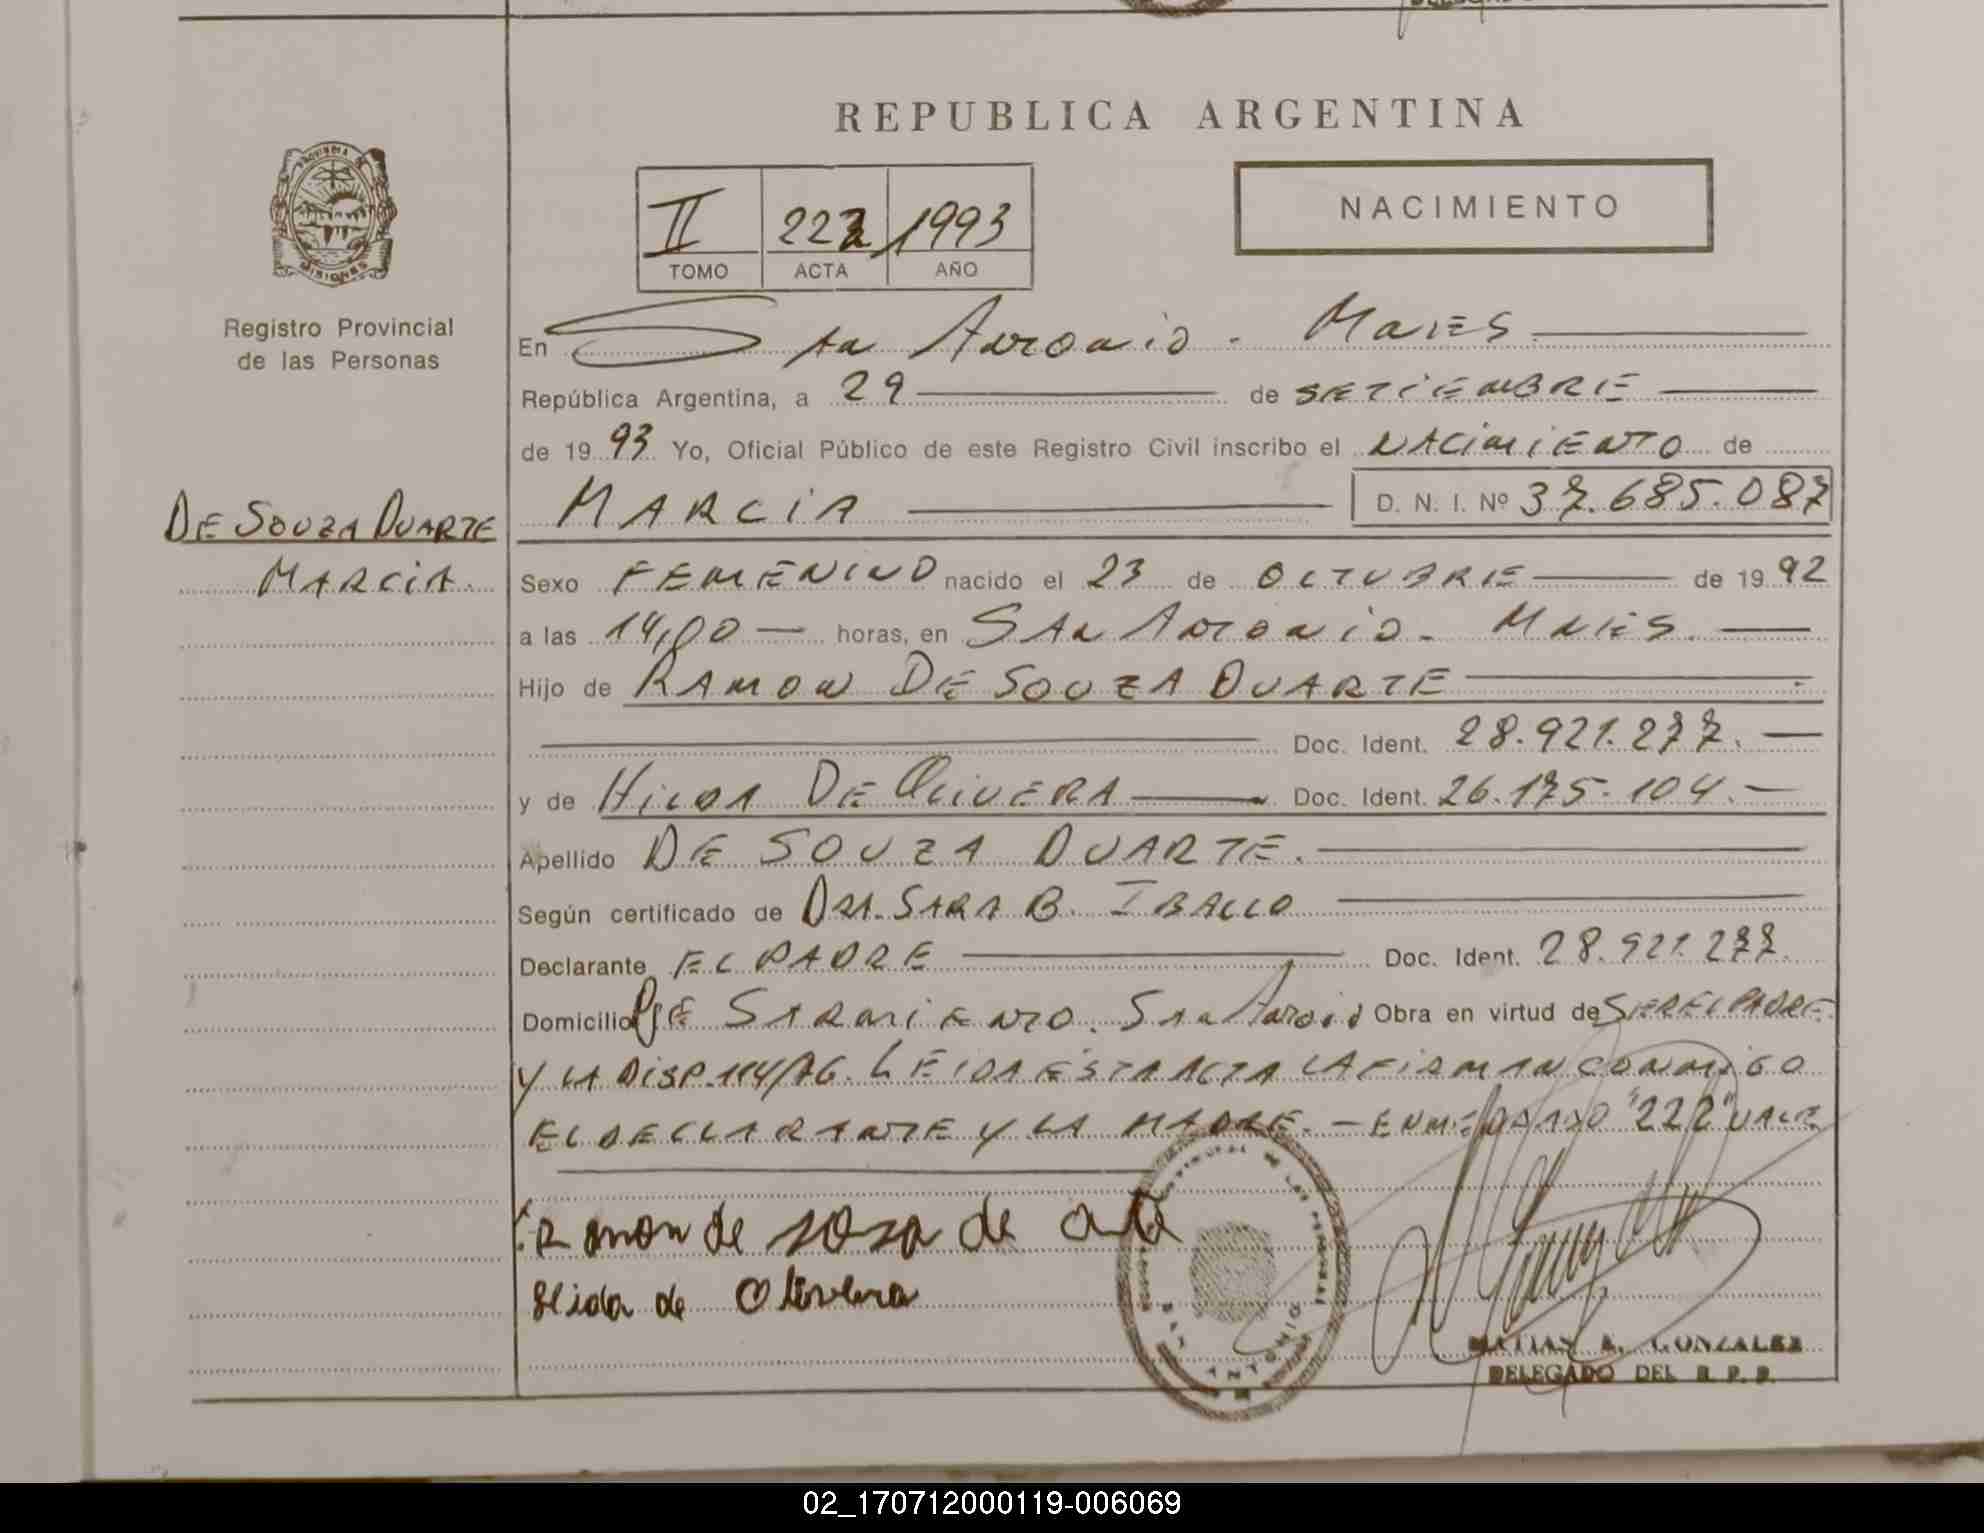 REPUBLICA ARGENTINA
II 222 1993
TOMO ACTA AÑO
NACIMIENTO
Registro Provincial
de las Personas
DE SOUZA DUARTE
MARCIA.
En San Antonio - Mnes
República Argentina, a 29 de SETIEMBRE
de 19 93 Yo, Oficial Público de este Registro Civil inscribo el NACIMIENTO de
MARCIA D. N. I. Nº 37.685.087
Sexo FEMENINO nacido el 23 de OCTUBRE de 19 92
a las 14,00 horas, en SAN ANTONIO - MNES.
Hijo de RAMON DE SOUZA DUARTE
Doc. Ident. 28.921.277.
y de HILDA DE OLIVERA Doc. Ident. 26.175.104.
Apellido DE SOUZA DUARTE.
Según certificado de DRA. SARA B. IBALLO
Declarante EL PADRE Doc. Ident. 28.921.277.
Domicilio Pje SARMIENTO. San Antonio Obra en virtud de SER EL PADRE
Y LA DISP. 114/76. LEIDA ESTA ACTA LA FIRMAN CONMIGO
EL DECLARANTE Y LA MADRE. - ENMENDADO "222" VALE
Ramon de sosa de
Hida de Olivera
SAN ANTONIO
MATIAS A. GONZALEZ
DELEGADO DEL R. P. P.
02_170712000119-006069